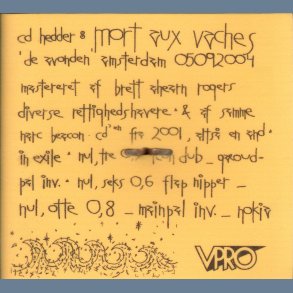 cd hedder 8 mort aux vaches
'de avonden amsterdam 05092004
mastereret af brett shearn rogers
diverse rettighedshavere · & af samme
marc beacon · cd'en fra 2001, altså en end
in exile · nul, tre dub_
pal inv. · nul, seks 0,6 flap nipper _
nul, otte 0,8 _ mainpal inv. _ nokia
VPRO